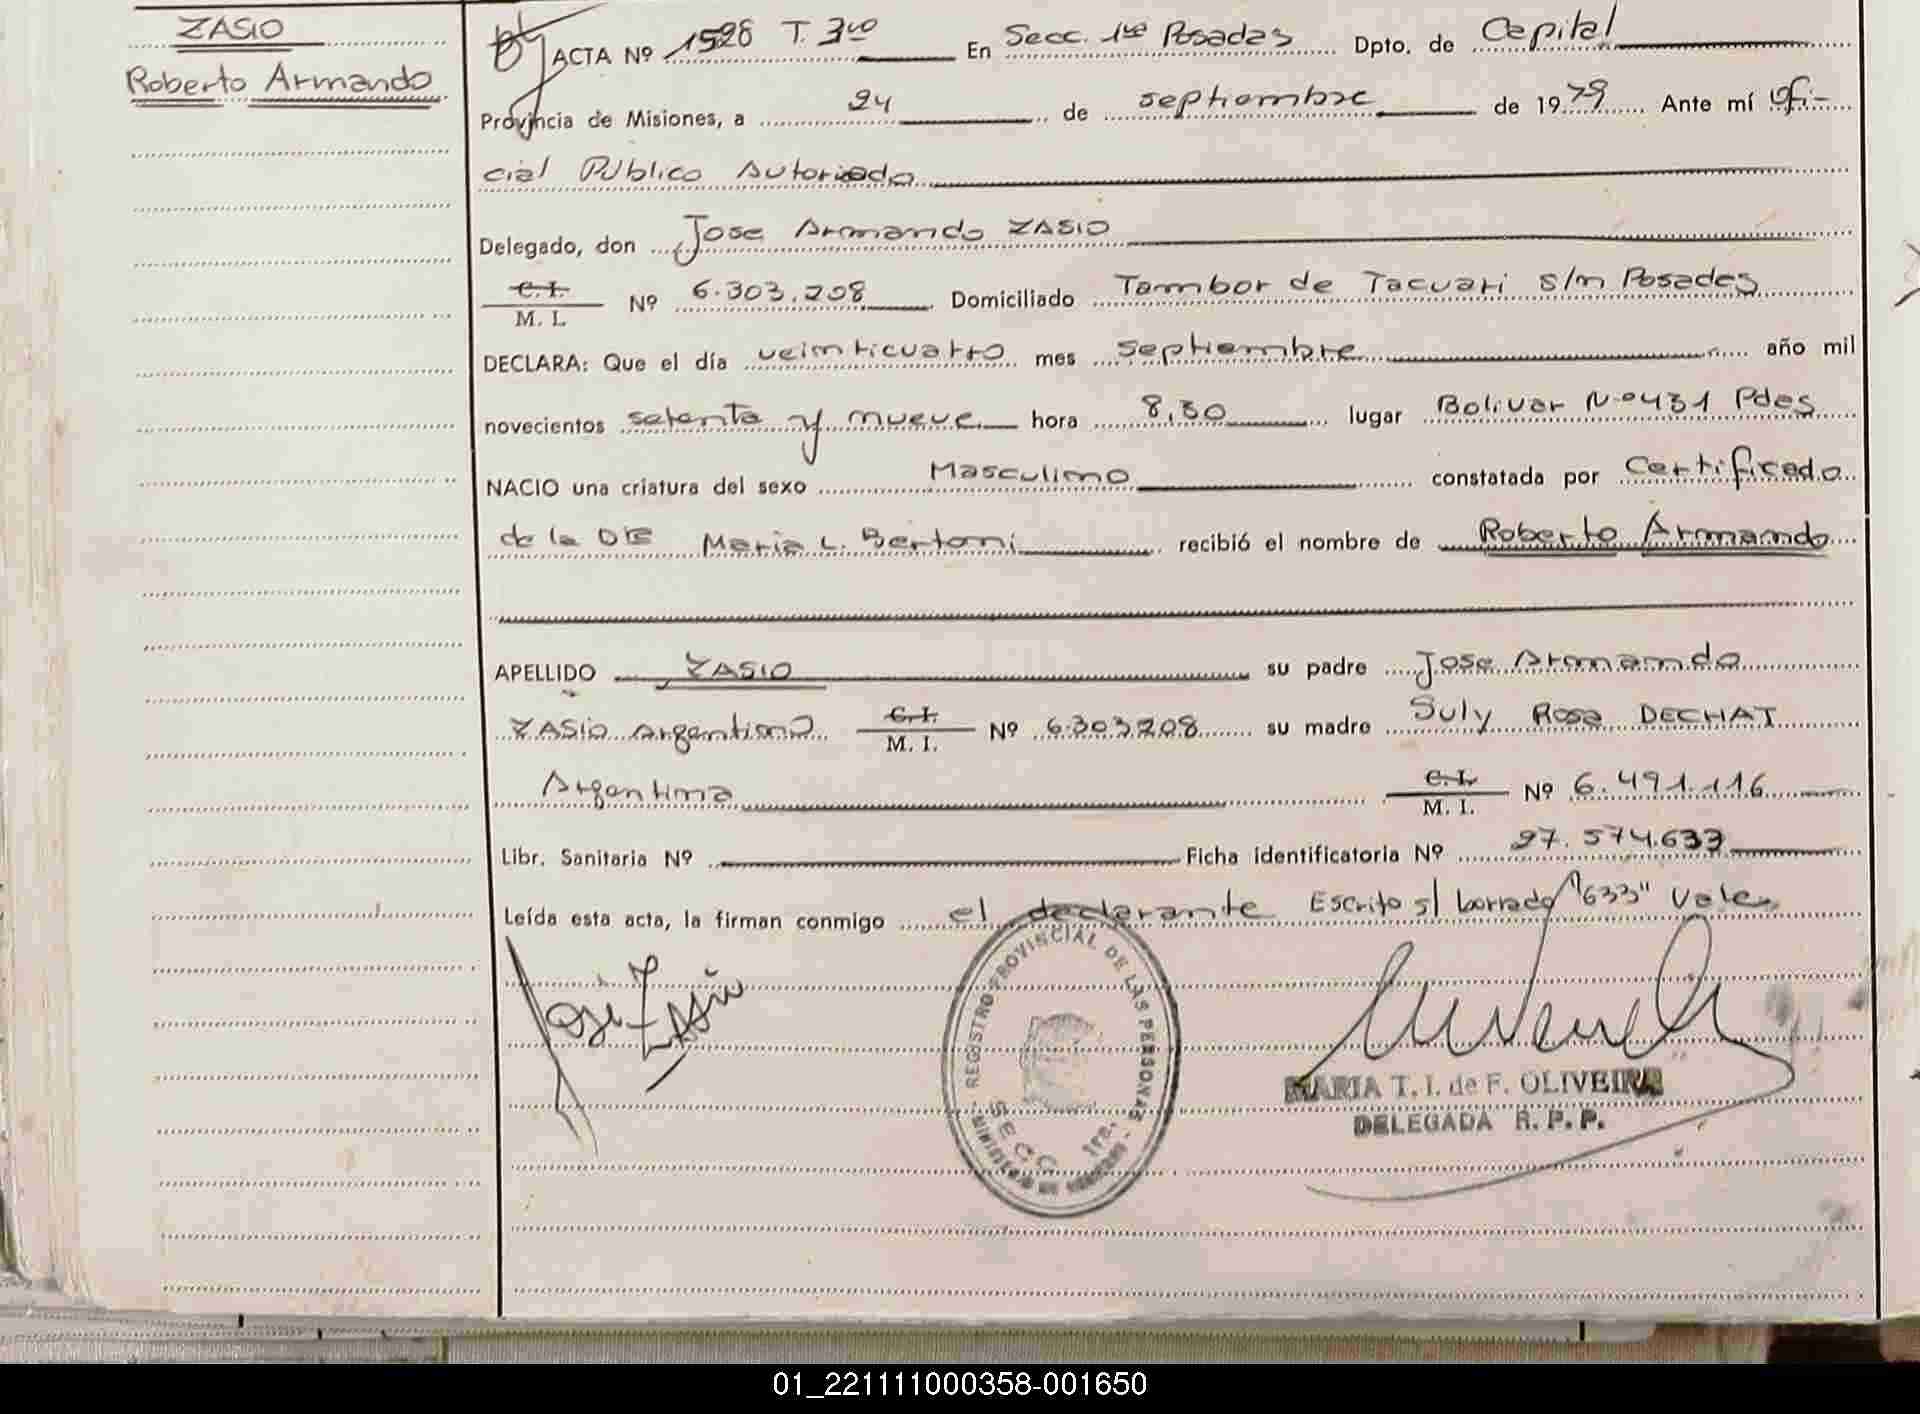 ZASIO
Roberto Armando
ACTA Nº 1526 T. 3ro En Secc. 1ra Posadas Dpto. de Capital
Provincia de Misiones, a 24 de septiembre de 1979 Ante mí Ofi-
cial Público Autoriado
Delegado, don Jose Armando ZASIO
C. I. / M. I. Nº 6.303.208 Domiciliado Tambor de Tacuari s/n Posadas
DECLARA: Que el día veinticuatro mes septiembre año mil
novecientos setenta y nueve hora 8,30 lugar Bolivar Nº 431 Pdas
NACIO una criatura del sexo Masculino constatada por Certificado
de la DRa Maria L. Bertoni recibió el nombre de Roberto Armando
APELLIDO ZASIO su padre Jose Armando
ZASIO Argentino C. I. / M. I. Nº 6.303.208 su madre Suly Rosa DECHAT
Argentina C. I. / M. I. Nº 6.491.116
Libr. Sanitaria Nº Ficha identificatoria Nº 27.574.633
Leída esta acta, la firman conmigo el declarante Escrito s/ borrado "633" Vale
José Zasio
REGISTRO PROVINCIAL DE LAS PERSONAS
SECC. 1ra.
MINISTERIO DE GOBIERNO
MARIA T. I. de F. OLIVEIRA
DELEGADA R. P. P.
01_221111000358-001650